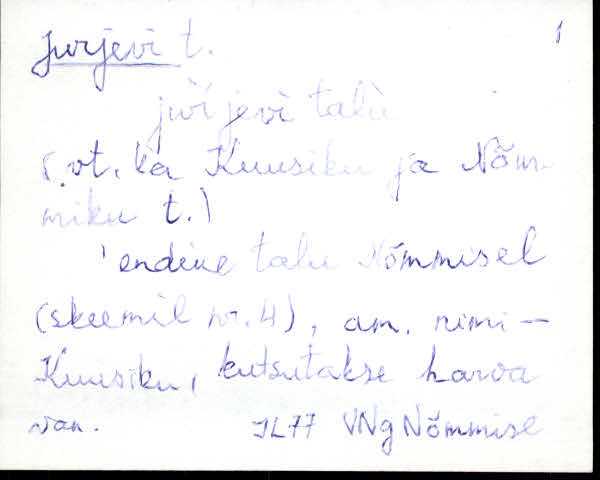 Jurjevi t. 1
jurjevi talu
(vt. ka Kuusiku ja Nõm-
miku t.)
' endine talu Nõmmisel
(skeemil nr. 4), am. nimi –
Kuusiku, kutsutakse harva
van. JL77 VNg Nõmmise